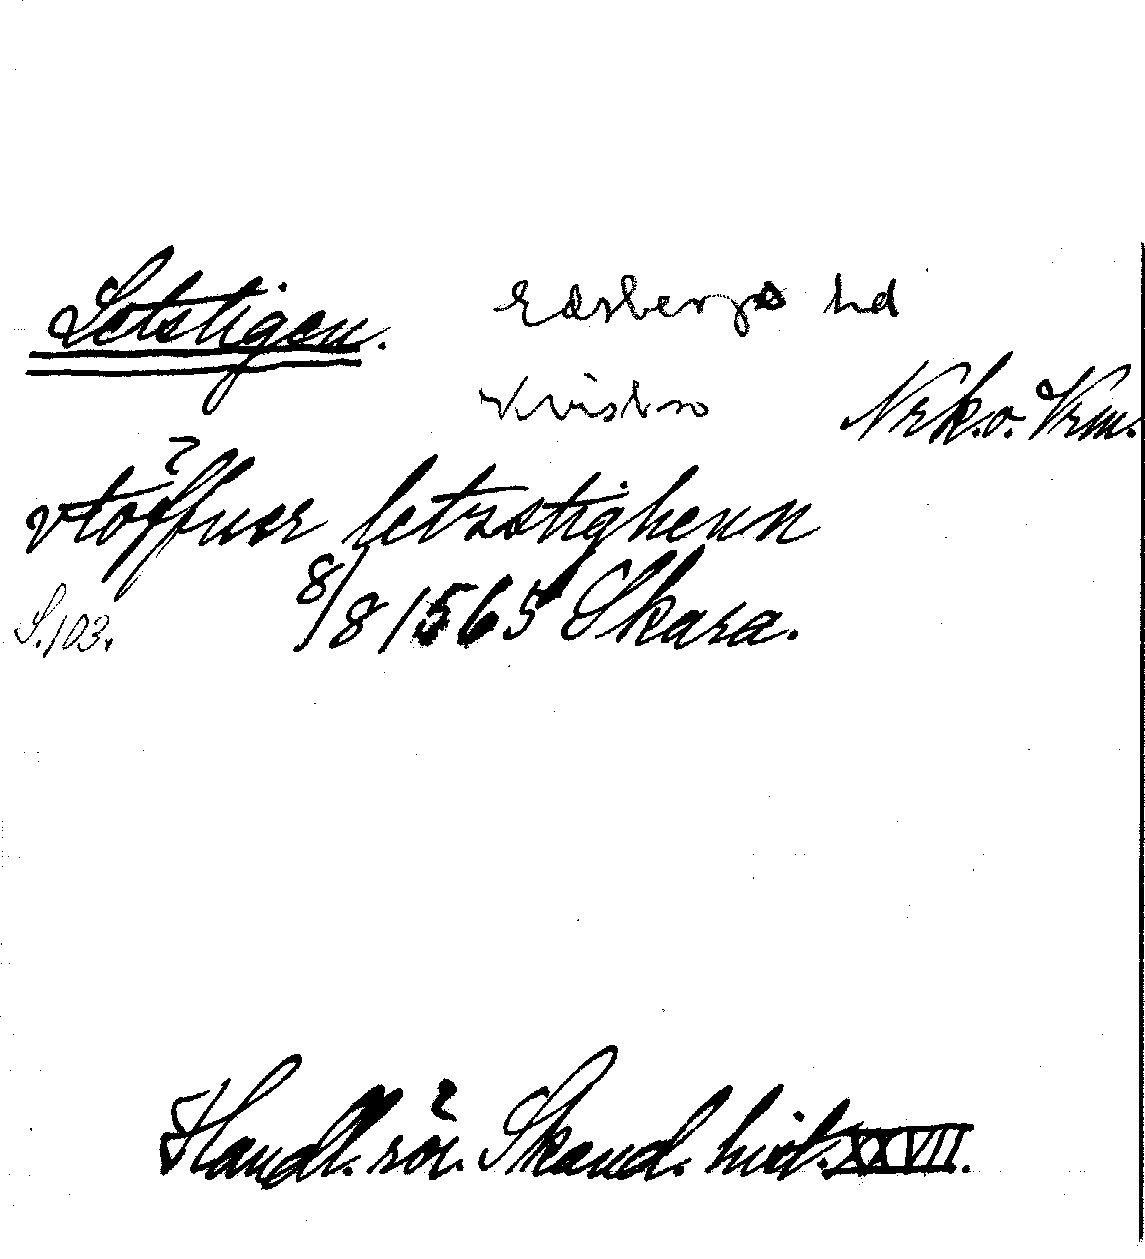 Letstigen. Edsbergs hd
Kvistbro Nrk. o. Vrm.
vtöffuer letzstighenn
S. 103. 8/8 1565 Skara.
Handl. rör. Skand. hist. XXVII.